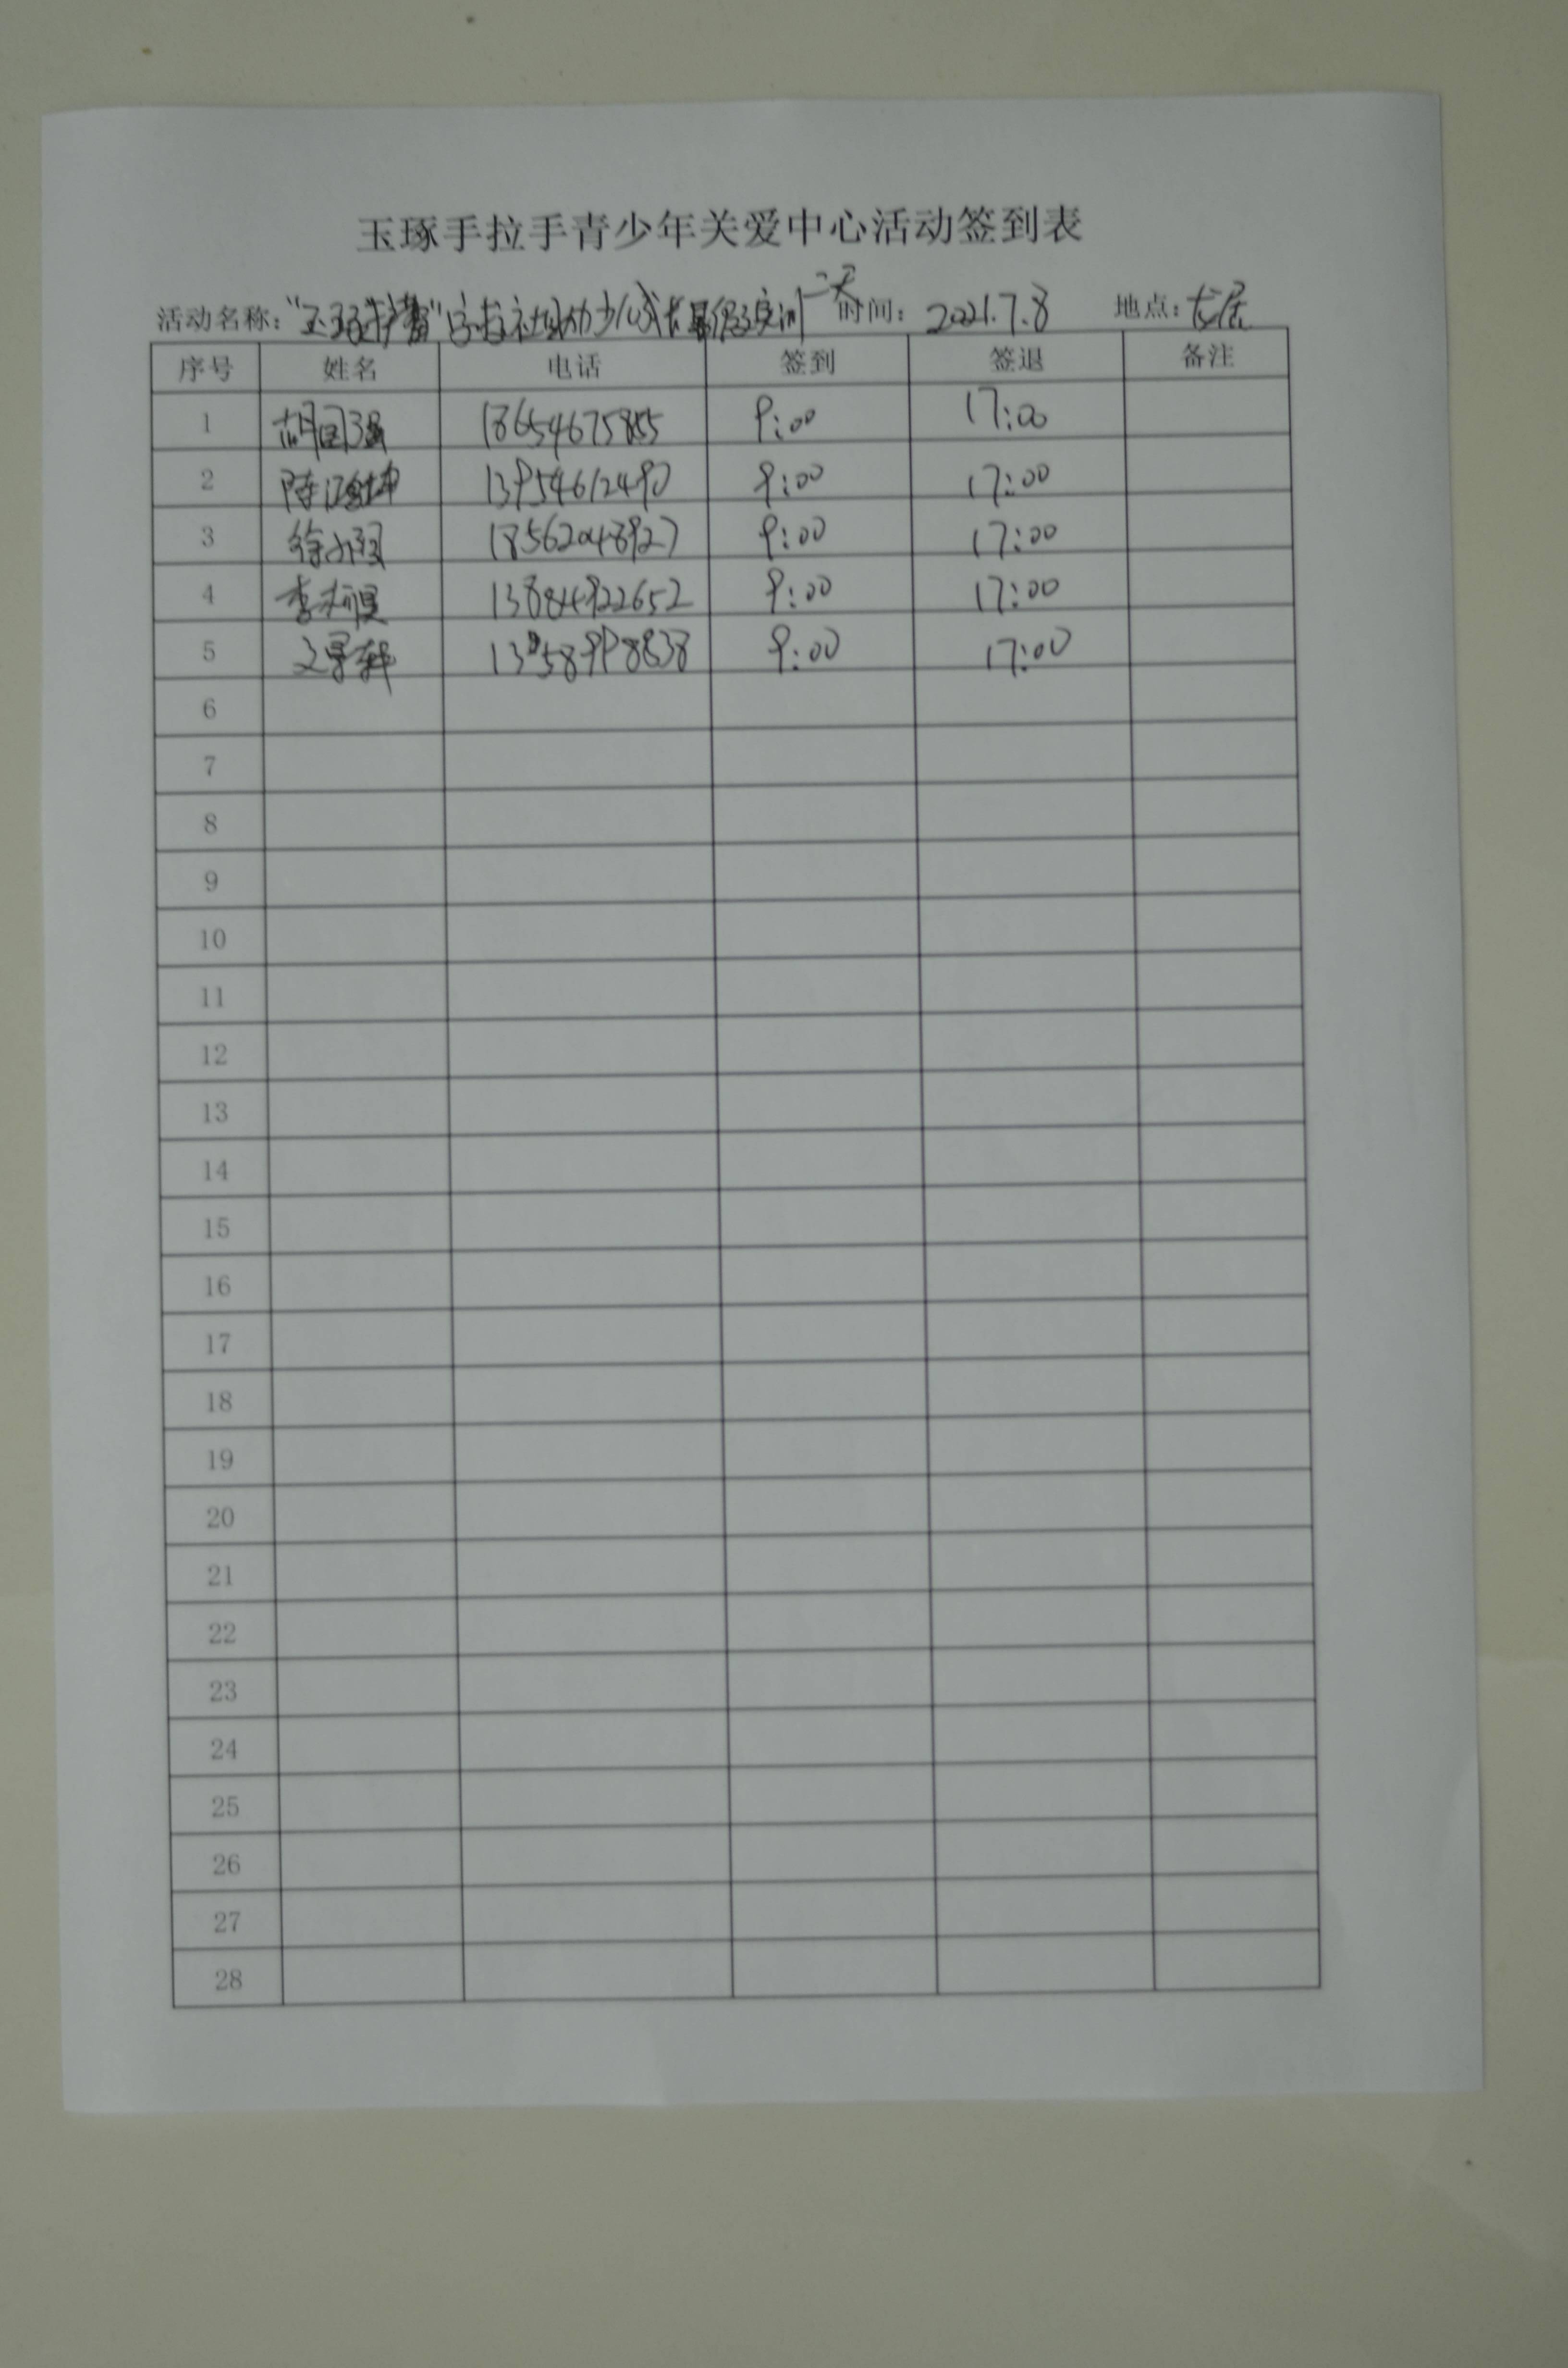 玉琢手拉手青少年关爱中心活动签到表
活动名称：“玉琢护蕾” 社幼少儿成长暑假实训一天 时间：2021.7.8 地点：龙居
序号 姓名 电话 签到 签退 备注
1 胡国强 18654675855 9:00 17:00
2 陈 坤 13954612490 9:00 17:00
3 徐小羽 18562048927 9:00 17:00
4 李 13884922652 9:00 17:00
5 文景轩 9:00 17:00
6
7
8
9
10
11
12
13
14
15
16
17
18
19
20
21
22
23
24
25
26
27
28